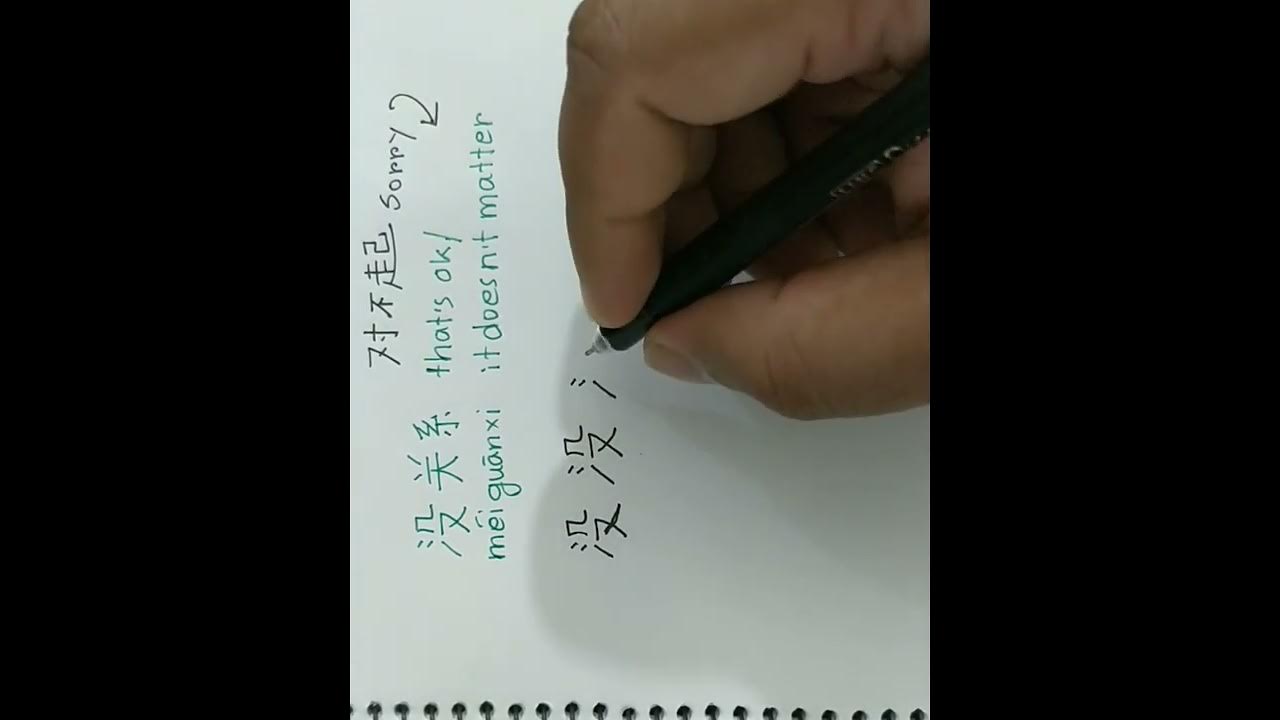 对不起 sorry
没关系 that's ok/
méi guānxi it doesn't matter
没 没 氵